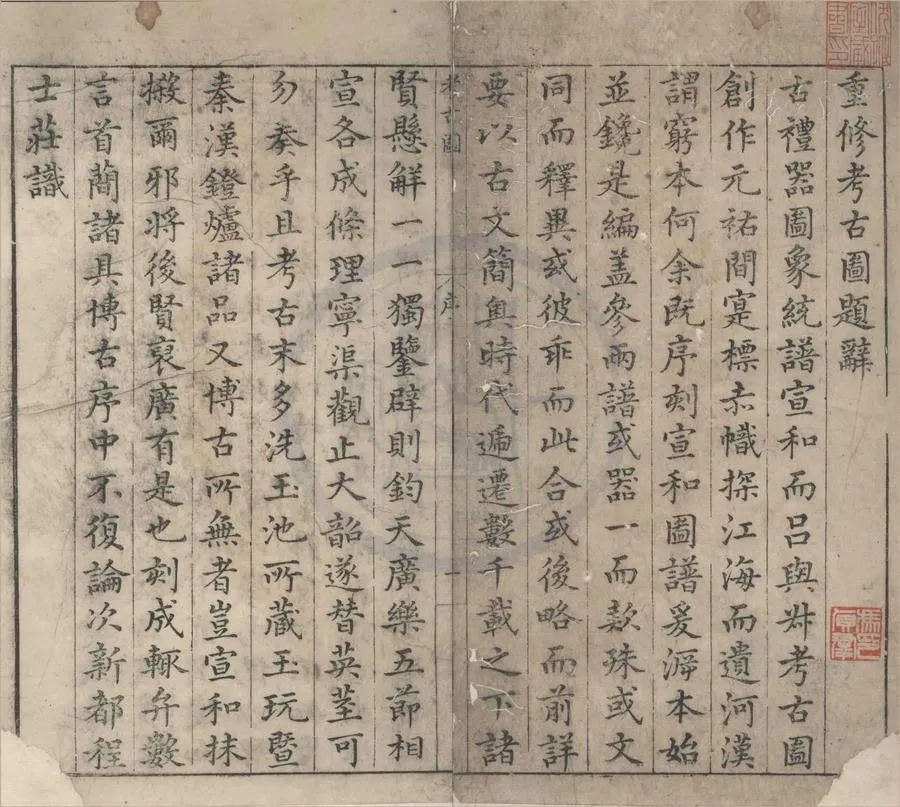 重修考古圖題辭
古禮器圖象統譜宣和而吕與叔考古圖
創作元祐間寔標赤幟探江海而遺河漢
謂窮本何余既序刻宣和圖譜爰㴑本始
並鑱是編盖參兩譜或器一而款殊或文
同而釋異或彼乖而此合或後略而前詳
要以古文簡奥時代遞遷數千載之下諸
考古圖
序
一
賢懸解一一獨鑒辟則鈞天廣樂五節相
宣各成條理寧渠觀止大韶遂替英莖可
勿奏乎且考古末多洗玉池所藏玉玩暨
秦漢鐙爐諸品又博古所無者豈宣和抹
摋爾邪將後賢裒廣有是也刻成輙弁數
言首蕳諸具博古序中不復論次新都程
士莊識